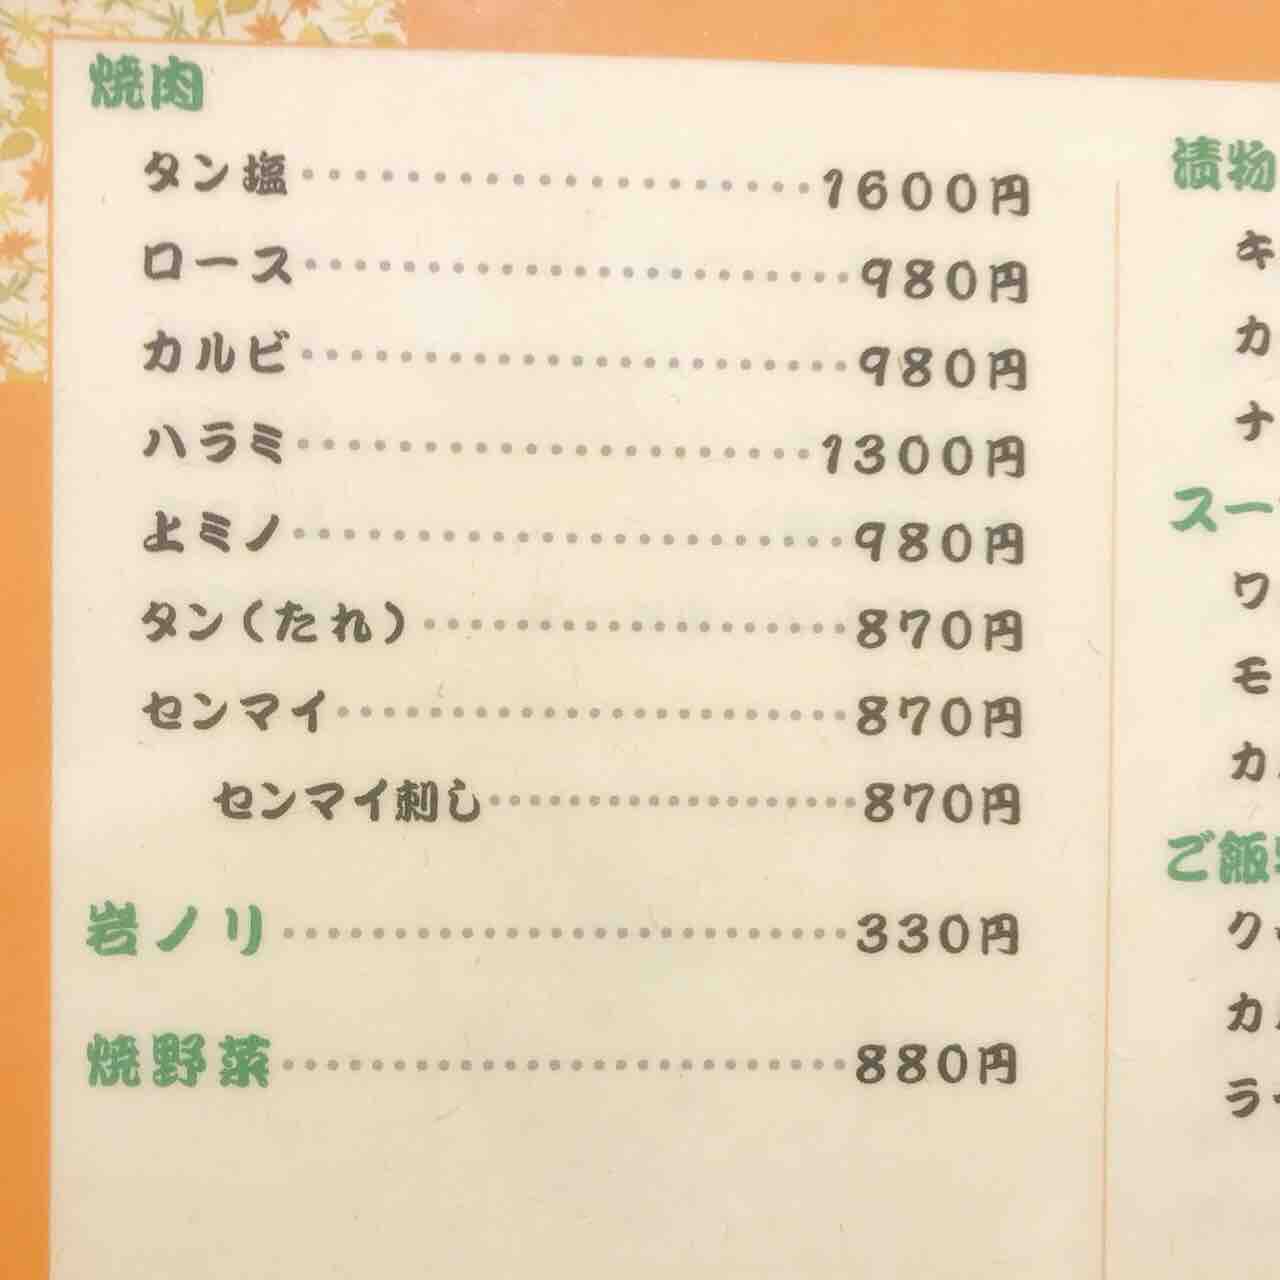 焼肉
タン塩・・・・・・・・・・・・・・・・・・・・1600円
ロース・・・・・・・・・・・・・・・・・・・・・・980円
カルビ・・・・・・・・・・・・・・・・・・・・・・980円
ハラミ・・・・・・・・・・・・・・・・・・・・・1300円
上ミノ・・・・・・・・・・・・・・・・・・・・・・・980円
タン(たれ)・・・・・・・・・・・・・・・・・870円
センマイ・・・・・・・・・・・・・・・・・・・・870円
センマイ刺し・・・・・・・・・・・・・・・870円
岩ノリ・・・・・・・・・・・・・・・・・・・・・・330円
焼野菜・・・・・・・・・・・・・・・・・・・・・・880円
漬物
キ
カ
ナ
スー
ワ
モ
カ
ご飯
ク
カ
ラ